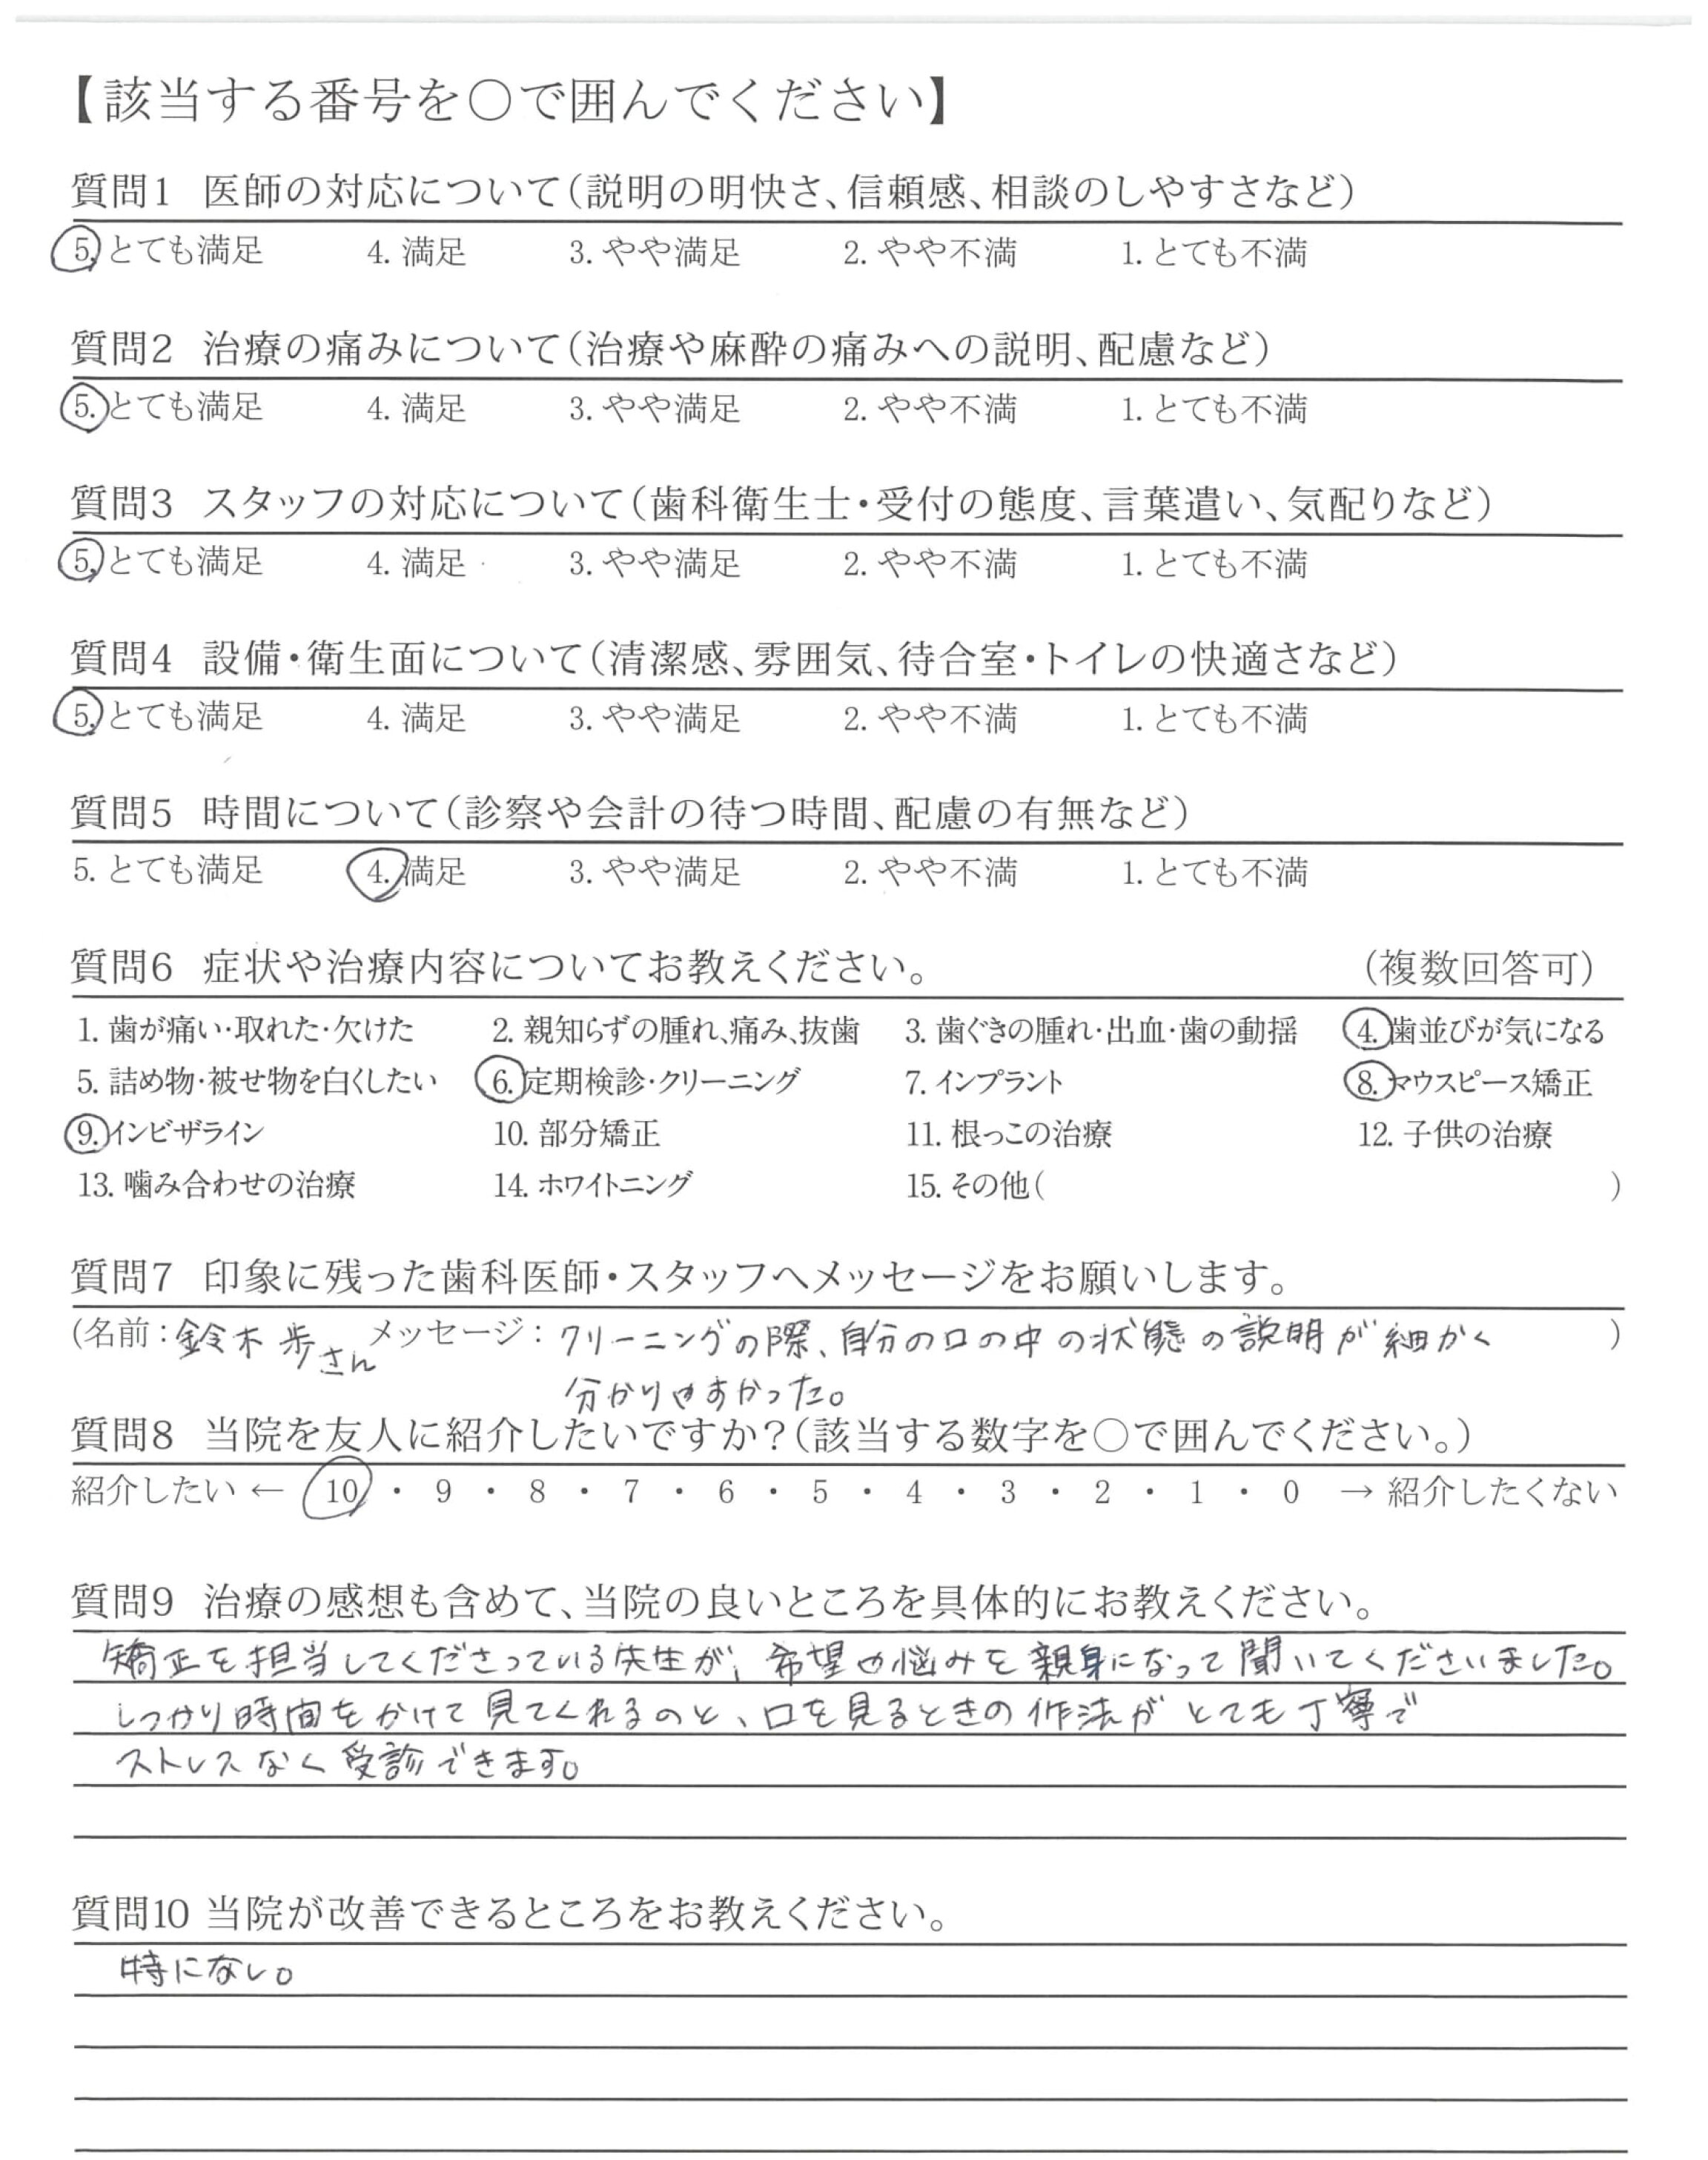 【該当する番号を○で囲んでください】
質問1 医師の対応について（説明の明快さ、信頼感、相談のしやすさなど）
5. とても満足 4. 満足 3. やや満足 2. やや不満 1. とても不満
質問2 治療の痛みについて（治療や麻酔の痛みへの説明、配慮など）
5. とても満足 4. 満足 3. やや満足 2. やや不満 1. とても不満
質問3 スタッフの対応について（歯科衛生士・受付の態度、言葉遣い、気配りなど）
5. とても満足 4. 満足 3. やや満足 2. やや不満 1. とても不満
質問4 設備・衛生面について（清潔感、雰囲気、待合室・トイレの快適さなど）
5. とても満足 4. 満足 3. やや満足 2. やや不満 1. とても不満
質問5 時間について（診察や会計の待つ時間、配慮の有無など）
5. とても満足 4. 満足 3. やや満足 2. やや不満 1. とても不満
質問6 症状や治療内容についてお教えください。 （複数回答可）
1. 歯が痛い・取れた・欠けた 2. 親知らずの腫れ、痛み、抜歯 3. 歯ぐきの腫れ・出血・歯の動揺 4. 歯並びが気になる
5. 詰め物・被せ物を白くしたい 6. 定期検診・クリーニング 7. インプラント 8. マウスピース矯正
9. インビザライン 10. 部分矯正 11. 根っこの治療 12. 子供の治療
13. 噛み合わせの治療 14. ホワイトニング 15. その他（ ）
質問7 印象に残った歯科医師・スタッフへメッセージをお願いします。
（名前：鈴木 歩さん メッセージ：クリーニングの際、自分の口の中の状態の説明が細かく ）
分かりやすかった。
質問8 当院を友人に紹介したいですか？（該当する数字を○で囲んでください。）
紹介したい ← 10 ・ 9 ・ 8 ・ 7 ・ 6 ・ 5 ・ 4 ・ 3 ・ 2 ・ 1 ・ 0 → 紹介したくない
質問9 治療の感想も含めて、当院の良いところを具体的にお教えください。
矯正を担当してくださっている先生が、希望や悩みを親身になって聞いてくださいました。
しっかり時間をかけて見てくれるのと、口を見るときの作法がとても丁寧で
ストレスなく受診できます。
質問10 当院が改善できるところをお教えください。
特にない。